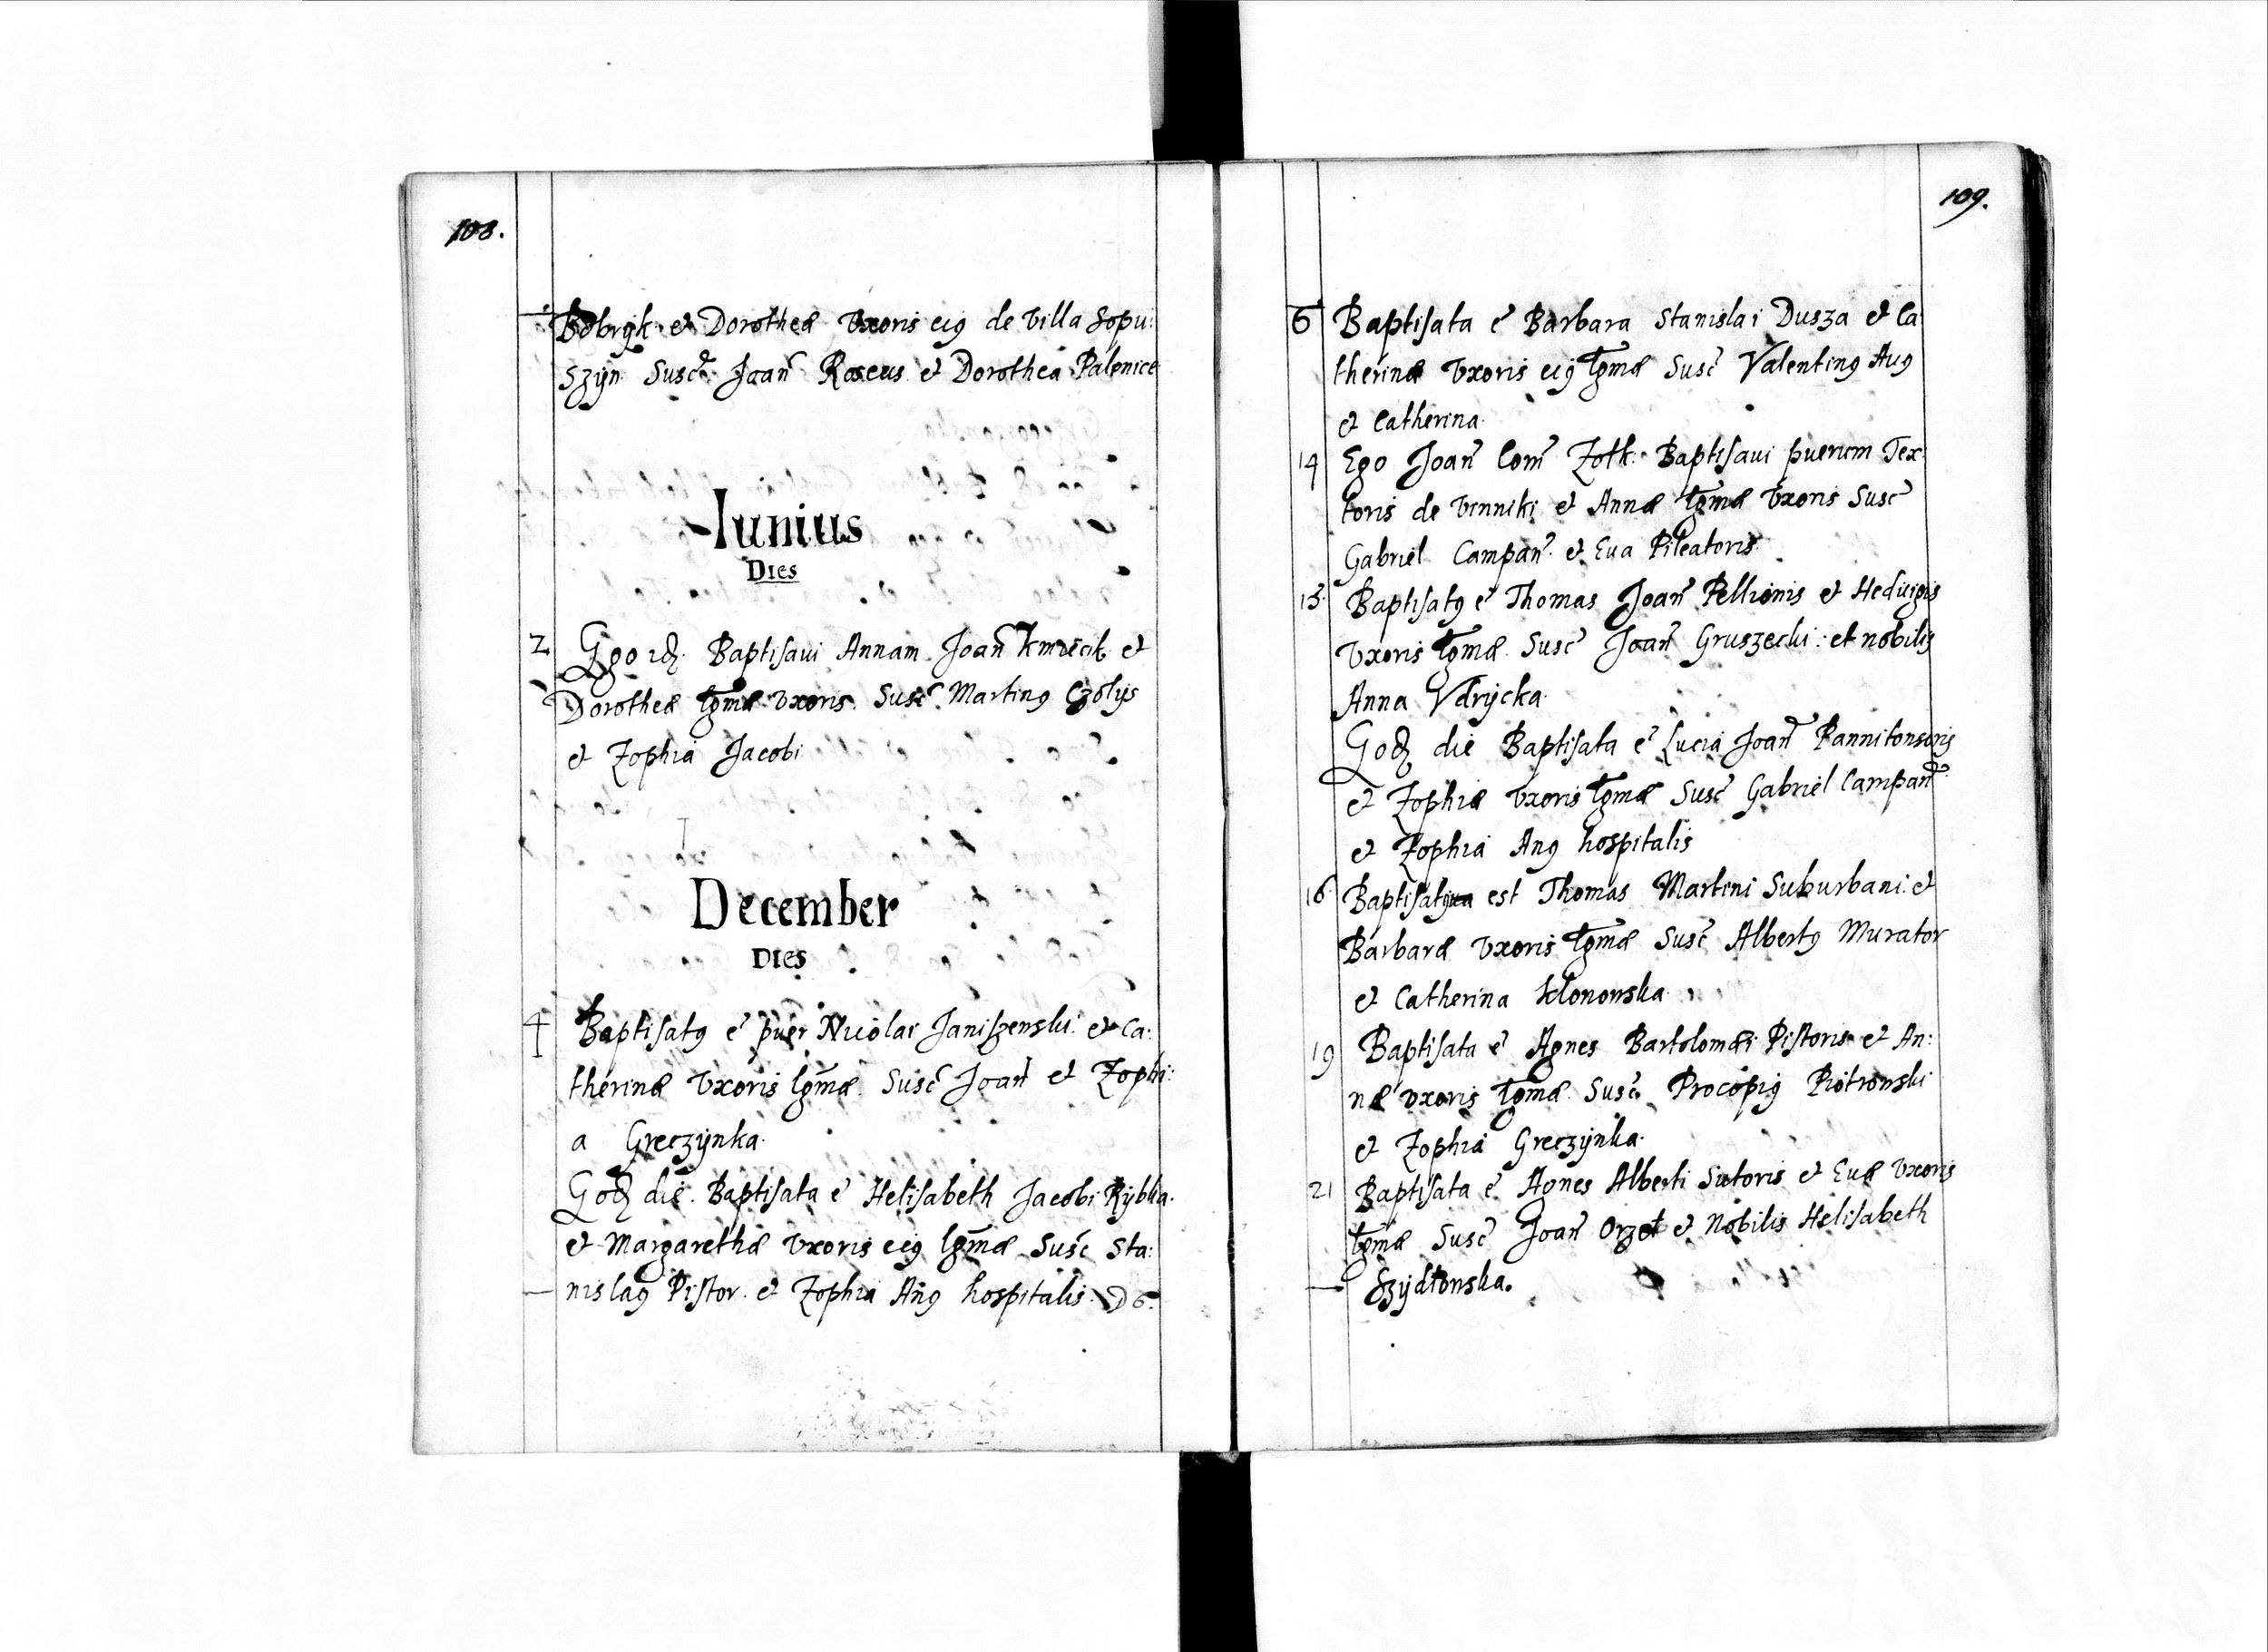 108.
Bobryk et Dorotheæ Vxoris eiꝰ de Villa Sopu:
szyn Suscẽ Joañ Roseus et Dorothea Palenice
Iunius
Dies
2 Ego id. Baptisaui Annam Joañ Kmiecik et
Dorotheæ lgmæ vxoris. Suscẽ Martinꝰ Czolys
et Zophia Jacobi
December
DIES
4 Baptisatꝰ ẽ puer Nicolai Janiszenski et Ca:
therinæ Vxoris lgmæ. Suscẽ Joañ et Zophi:
a Greczynka.
Eod die. Baptisata ẽ Helisabeth Jacobi Rybka.
et Margarethæ Vxoris eiꝰ lgmæ Suscẽ Sta:
nislaꝰ Pistor. et Zophia Anꝰ hospitalis. D 6.
109.
6 Baptisata ẽ Barbara Stanislai Dusza et Ca
therinæ Vxoris eiꝰ lgmæ Suscẽ Valentinꝰ Auꝰ
et Catherina.
14 Ego Joañ Com̃ Zolk: Baptisaui puerum Tex:
toris de Vinniki et Annæ lgmæ Vxoris Suscẽ
Gabriel Campañ. et Eua Pileatoris.
15. Baptisatꝰ ẽ Thomas Joañ Pellionis et Heduigis
Vxoris lgmæ. Suscẽ Joañ Gruszecki: et nobilis
Anna Vdrycka.
Eod die Baptisata ẽ Lucia Joañ Pannitonsoris
et Zophiæ Vxoris lgmæ Suscẽ Gabriel Campañ
et Zophia Anꝰ hospitalis
16 Baptisatꝰ est Thomas Martini Suburbani. et
Barbaræ Vxoris lgmæ Suscẽ Albertꝰ Murator
et Catherina Klononska.
19 Baptisata ẽ Agnes Bartolomæi Pistoris et An:
næ vxoris lgmæ. Suscẽ Procopiꝰ Piotronski
et Zophia Greczynka.
21 Baptisata ẽ Agnes Alberti Sutoris et Euæ Vxoris
lgmæ Suscẽ Joañ Orzeł et Nobilis Helisabeth
Szydłonska.